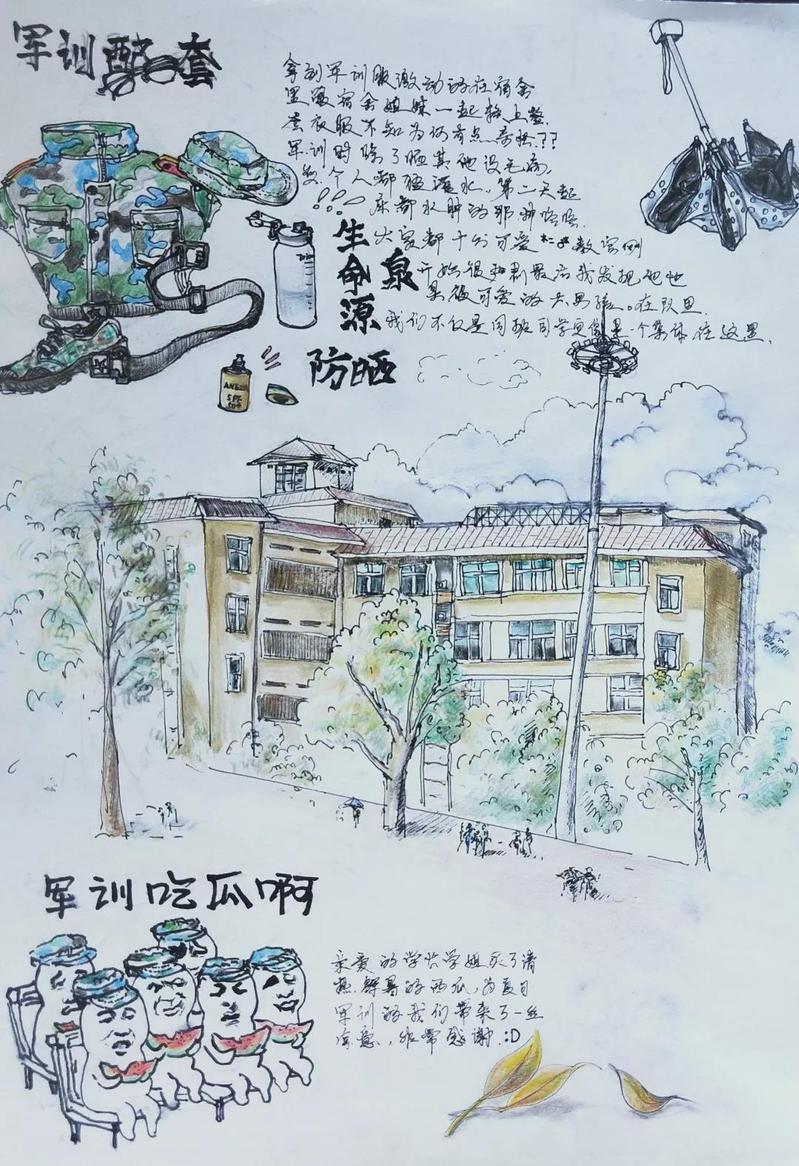 军训配套
拿到军训服激动的在宿舍
里跟宿舍姐妹一起换上整
套衣服不知为何有点奇怪??
军训时除了晒其他没毛病,
每个人都猛灌水。第二天起
床都水肿的那种哈哈
!!!
大家都十分可爱 教官刚
开始很 最后我发现他也
是很可爱的大男孩。在队里
我们不仅是同班同学更像是一个集体在这里.
生命源泉
防晒
ANESSA
SPF
50+
军训吃瓜啊
亲爱的学长学姐买了清
热解暑的西瓜,为夏日
军训的我们带来了一丝
凉意,非常感谢:D